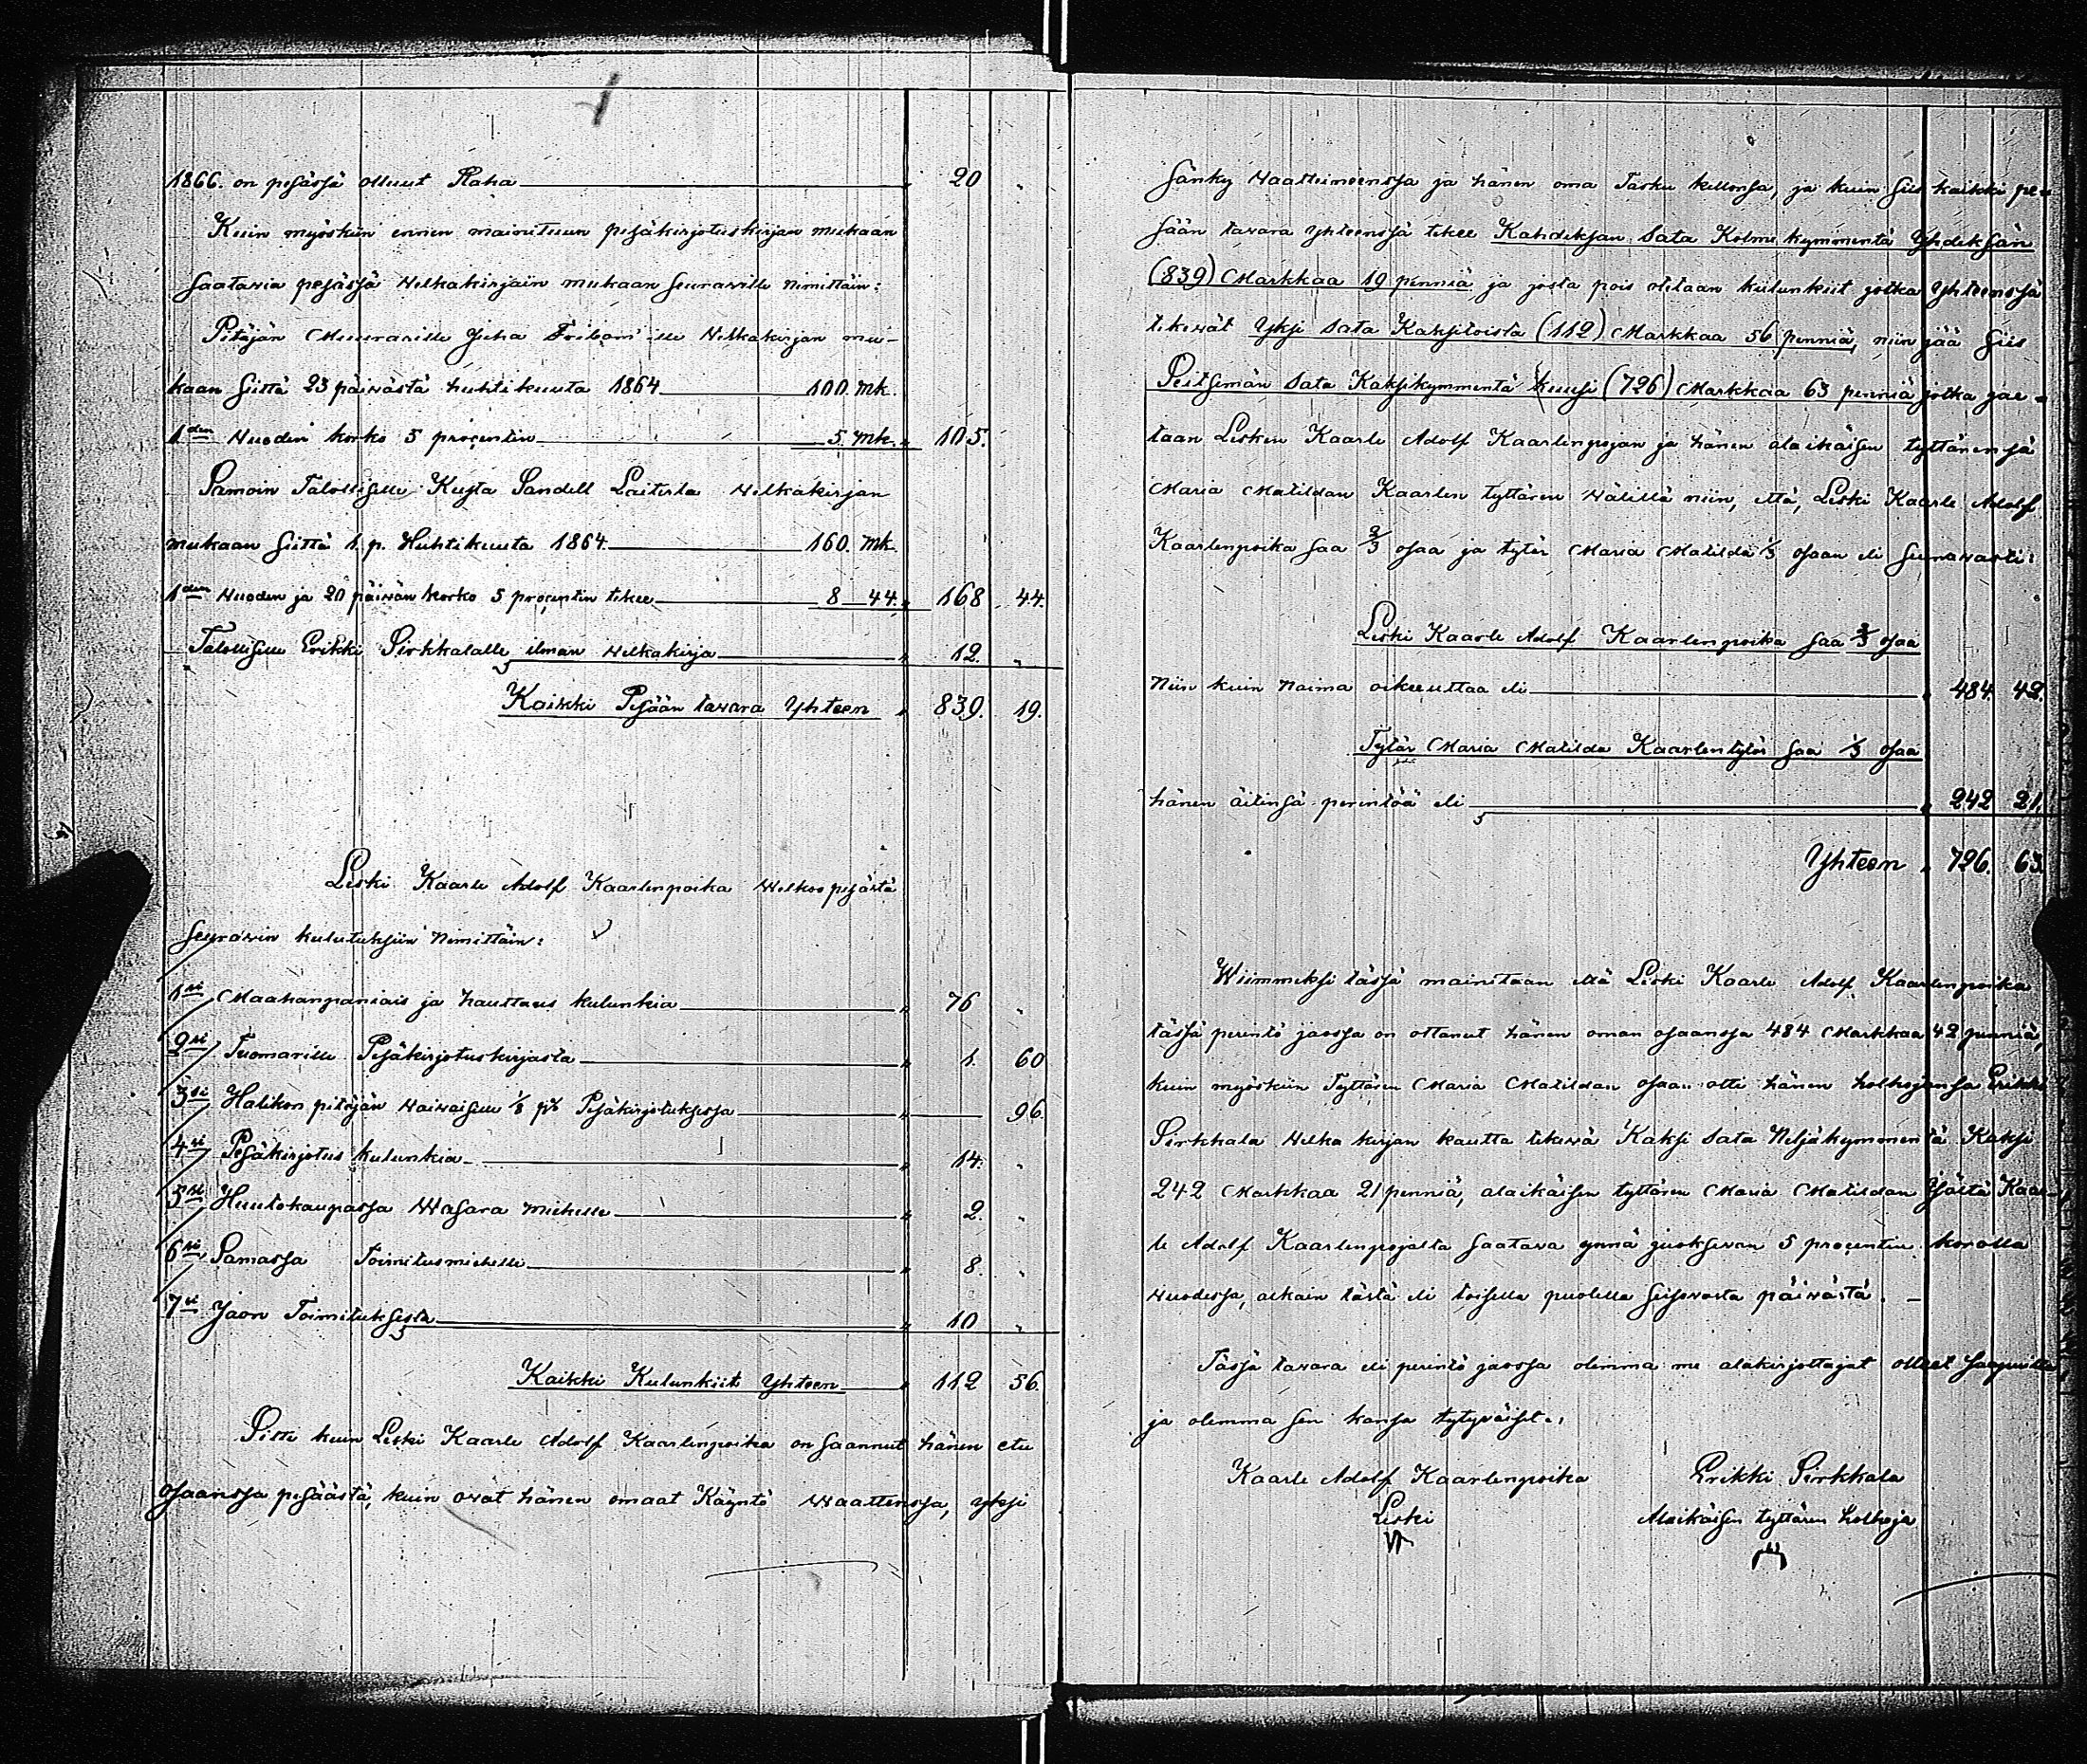 1866. on pesässä ollunt Raha " 20 "
Kuin myöskin ennen mainitunn pesäkirjotuskirjan mukaan
saatavia pesässä Welkakirjain mukaan seuraville nimittäin:
Pitäjän Muurarille Juha Fribom'ille Welkakirjan mu-
kaan siittä 23 päiwästä huhtikuuta 1864 100. Mk.
1den Wuoden korko 5 procentin 5. Mk. " 105.
Samoin Talolliselle Kusta Sandell Laiterla Welkakirjan
mukaan siittä 1 p. Huhtikuuta 1864 160. Mk.
1den Wuoden ja 20 päiwän korko 5 procentin tekee 8 44. " 168 44.
Talollisille Erikki Sirkkalalle ilman Welkakirja " 12. "
Kaikki Pesään tavara Yhteen " 839. 19.
Leski Kaarle Adolf Kaarlenpoika Welkoo pesästä
seuravin kulutuksiin Nimittäin:
1si Maahanpaniais ja hautaus kulunkia " 76 "
2si Tuomarille Pesäkirjotuskirjasta " 1. 60
3si Halikon pitäjän Waiwaisille 1/8 pC Pesäkirjotuksessa " 96.
4si Pesäkirjotus kulunkia " 14. "
5si Huutokaupassa Wasara miehelle " 2. "
6si Samassa Toimitusmiehelle " 8. "
7si Jaon Toimituksesta " 10 "
Kaikki Kulunkiit Yhteen " 112 56.
Sitte kuin Leski Kaarle Adolf Kaarlenpoika on saannut hänen etu
osaanssa pesäästä, kuin ovat hänen omaat Käyntö Waattenssa, yksi
Sänky Waatteineenssa ja hänen oma Tasku kellonsa, ja kuin siis kaikki pe-
sään tavara yhteenssä tekee Kahdeksan Sata Kolme kymmentä Yhdeksän
(839) Markkaa 19 penniä ja josta pois otetaan kulunkiit jotka Yhteenssä
tekevät Yksi Sata Kaksitoista (112) Markkaa 56 penniä, niin jää siis
Seitsemän Sata Kaksikymmentä kuusi (726) Markkaa 63 penniä jotka jae-
taan Lesken Kaarle Adolf Kaarlenpojan ja hänen alaikäisen tyttärensä
Maria Matildan Kaarlen tyttären wälillä niin, että, Leski Kaarle Adolf
Kaarlenpoika saa 2/3 osaa ja tytär Maria Matilda 1/3 osaan eli seuraavasti:
Leski Kaarle Adolf Kaarlenpoika saa 2/3 osaa
Niin kuin Naima oikeeuttaa eli " 484. 42.
Tytär Maria Matilda Kaarlentytär saa 1/3 osaa
hänen äitinsä perintöä eli " 242 21.
Yhteen " 726. 63.
Wiimmeksi tässä mainitaan että Leski Kaarle Adolf Kaarlenpoika
tässä perintö jaossa on ottanut hänen oman osaanssa 484 Markkaa 42 penniä,
kuin myöskin Tyttären Maria Matildan osaan otti hänen holhojansa Erikki
Sirkkala Welka kirjan kautta tekevä Kaksi Sata Neljäkymmentä Kaksi
242 Markkaa 21 penniä, alaikäisen tyttären Maria Matildan Isältä Kaar-
le Adolf Kaarlenpojalta saatava ynnä juoksevan 5 procentin korolla
Wuodessa, alkain tästä eli toisella puolella seisovasta päiwästä. –
Tässä tavara eli perintö jaossa olemma me alakirjottajat olleet saapuilla
ja olemma sen kansa tytyväiset.,
Kaarle Adolf Kaarlenpoika Erikki Sirkkala
Leski Alaikäisen tyttären holhoja